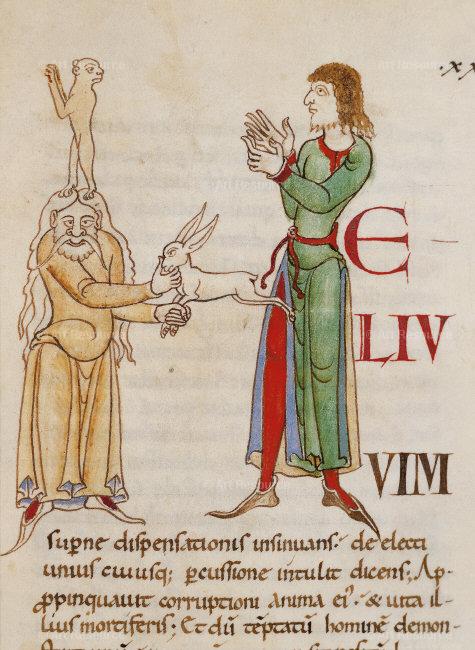 ·xx
E
LIV
VIM
superne dispensationis insinuans; de electi
unius cuiusq; percussione intulit dicens; Ap-
propinquauit corruptioni anima ei'. & uita il-
lius mortiferis; Et dū tēptatū hominē demon-